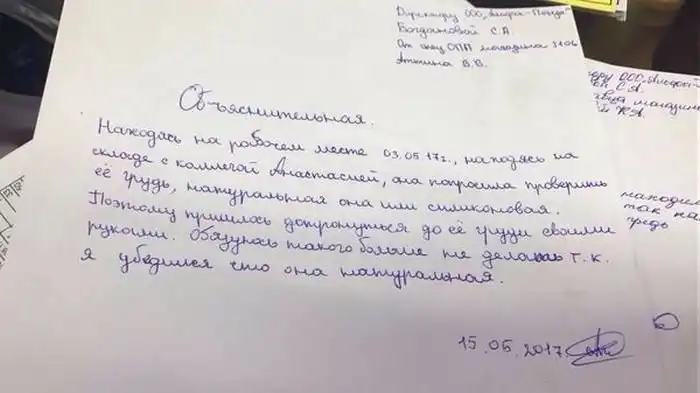 Директору ООО „Альфа-Победа"
Богдановой С.А.
От спец ОПА магазина 3106
Аткина В.В.
Объяснительная.
Находясь на рабочем месте 03.05.17г., находясь на
складе с коллегой Анастасией, она попросила проверить
её грудь, натуральная она или силиконовая.
Поэтому пришлось дотронуться до её груди своими
руками. Обязуюсь такого больше не делать т.к.
я убедился что она натуральная.
15.05.2017
С.А.
магазин
находи
так на
грудь